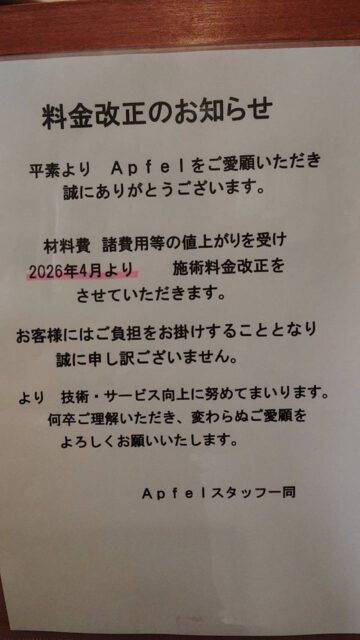 料金改正のお知らせ
平素より　Ａｐｆｅｌをご愛顧いただき
誠にありがとうございます。
材料費　諸費用等の値上がりを受け
2026年4月より　　施術料金改正を
させていただきます。
お客様にはご負担をお掛けすることとなり
誠に申し訳ございません。
より　技術・サービス向上に努めてまいります。
何卒ご理解いただき、変わらぬご愛顧を
よろしくお願いいたします。
Ａｐｆｅｌスタッフ一同